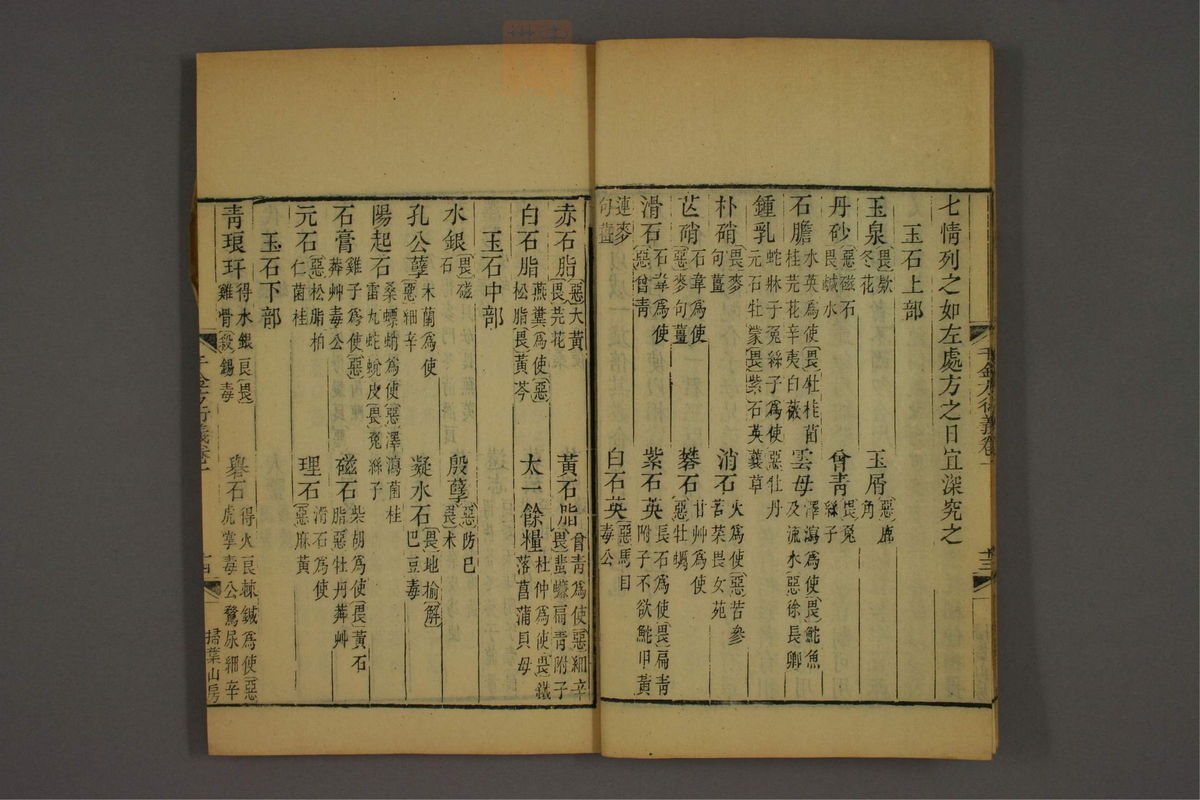 七情列之如左處方之日宜深究之
玉石上部
玉泉畏欵冬花 玉屑惡鹿角
丹砂惡磁石畏鹹水 曾青畏菟絲子
石膽水英爲使畏牡桂菌桂芫花辛夷白薇 雲母澤瀉爲使畏鮀魚及流水惡徐長卿
鍾乳蛇牀子菟絲子爲使惡牡丹元石牡蒙畏紫石英蘘草
朴硝畏麥句薑 消石火爲使惡苦參苦菜畏女菀
芒硝石韋爲使惡麥句薑 礬石甘艸爲使惡牡蠣
滑石石韋爲使惡曾青 紫石英長石爲使畏扁青附子不欲鮀甲黃
連麥句薑 白石英惡馬目毒公
赤石脂惡大黃畏芫花 黃石脂曾青爲使惡細辛畏蜚蠊扁青附子
白石脂燕糞爲使惡松脂畏黃芩 太一餘糧杜仲爲使畏鐵落菖蒲貝母
玉石中部
水銀畏磁石 殷孽惡防巳畏朮
孔公孽木蘭爲使惡細辛 凝水石畏地榆解巴豆毒
陽起石桑螵蛸爲使惡澤瀉菌桂雷丸蛇蛻皮畏菟絲子
石膏雞子爲使惡莽艸毒公 磁石柴胡爲使畏黃石脂惡牡丹莽艸
元石惡松脂柏仁菌桂 理石滑石爲使惡麻黃
玉石下部
青琅玕得水銀良畏雞骨殺錫毒 礜石得火良棘鍼爲使惡虎掌毒公鶩屎細辛
千金方衍義卷一 十三
千金方衍義卷一 十四 掃葉山房